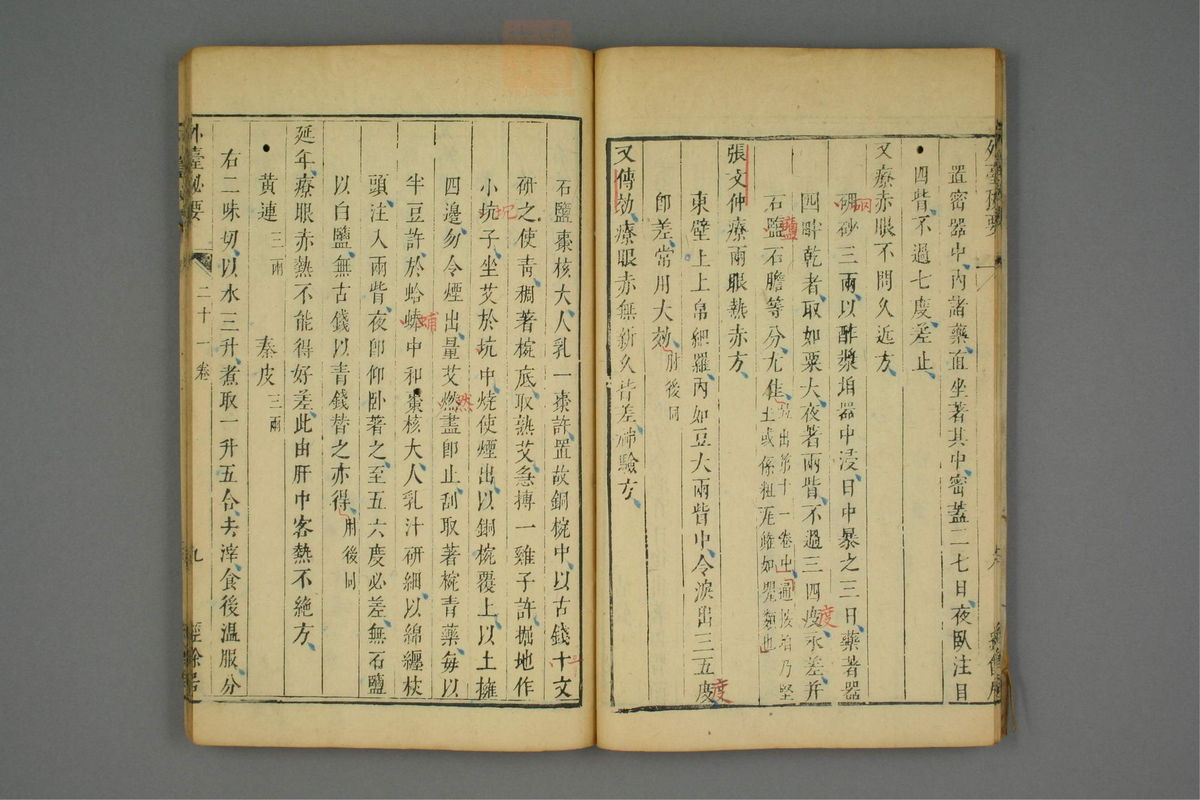 置密器中内諸藥面坐著其中密蓋二七日夜臥注目
四眥不過七度差止
又療赤眼不問久近方
硇砂三兩以酢漿垍器中浸日中暴之三日藥著器
四畔乾者取如粟大夜著兩眥不過三四度永差并
石鹽石膽等分尤佳並出第十一卷中通按垍乃堅
土或係粗疟雌如甖類也
張文仲療兩眼熱赤方
東壁上上帛細羅內如豆大兩眥中令淚出三五度
卽差常用大効肘後同
又傳効療眼赤無新久皆差神驗方
石鹽棗核大人乳一棗許置故銅椀中以古錢十文
研之使青稠著椀底取熟艾急摶一雞子許掘地作
小坑子坐艾於坑中燒使煙出以銅椀覆上以土擁
四邊勿令煙出量艾燃盡卽止刮取著椀青藥每以
半豆許於蛤蜯中和棗核大人乳汁研細以綿纏杖
頭注入兩眥夜卽仰卧著之至五六度必差無石鹽
以白鹽無古錢以青錢替之亦得肘後同
延年療眼赤熱不能得好差此由肝中客熱不絶方
黃連三兩 秦皮三兩
右二味切以水三升煮取一升五合去滓食後溫服分
外臺秘要 二十一卷 九 經餘居